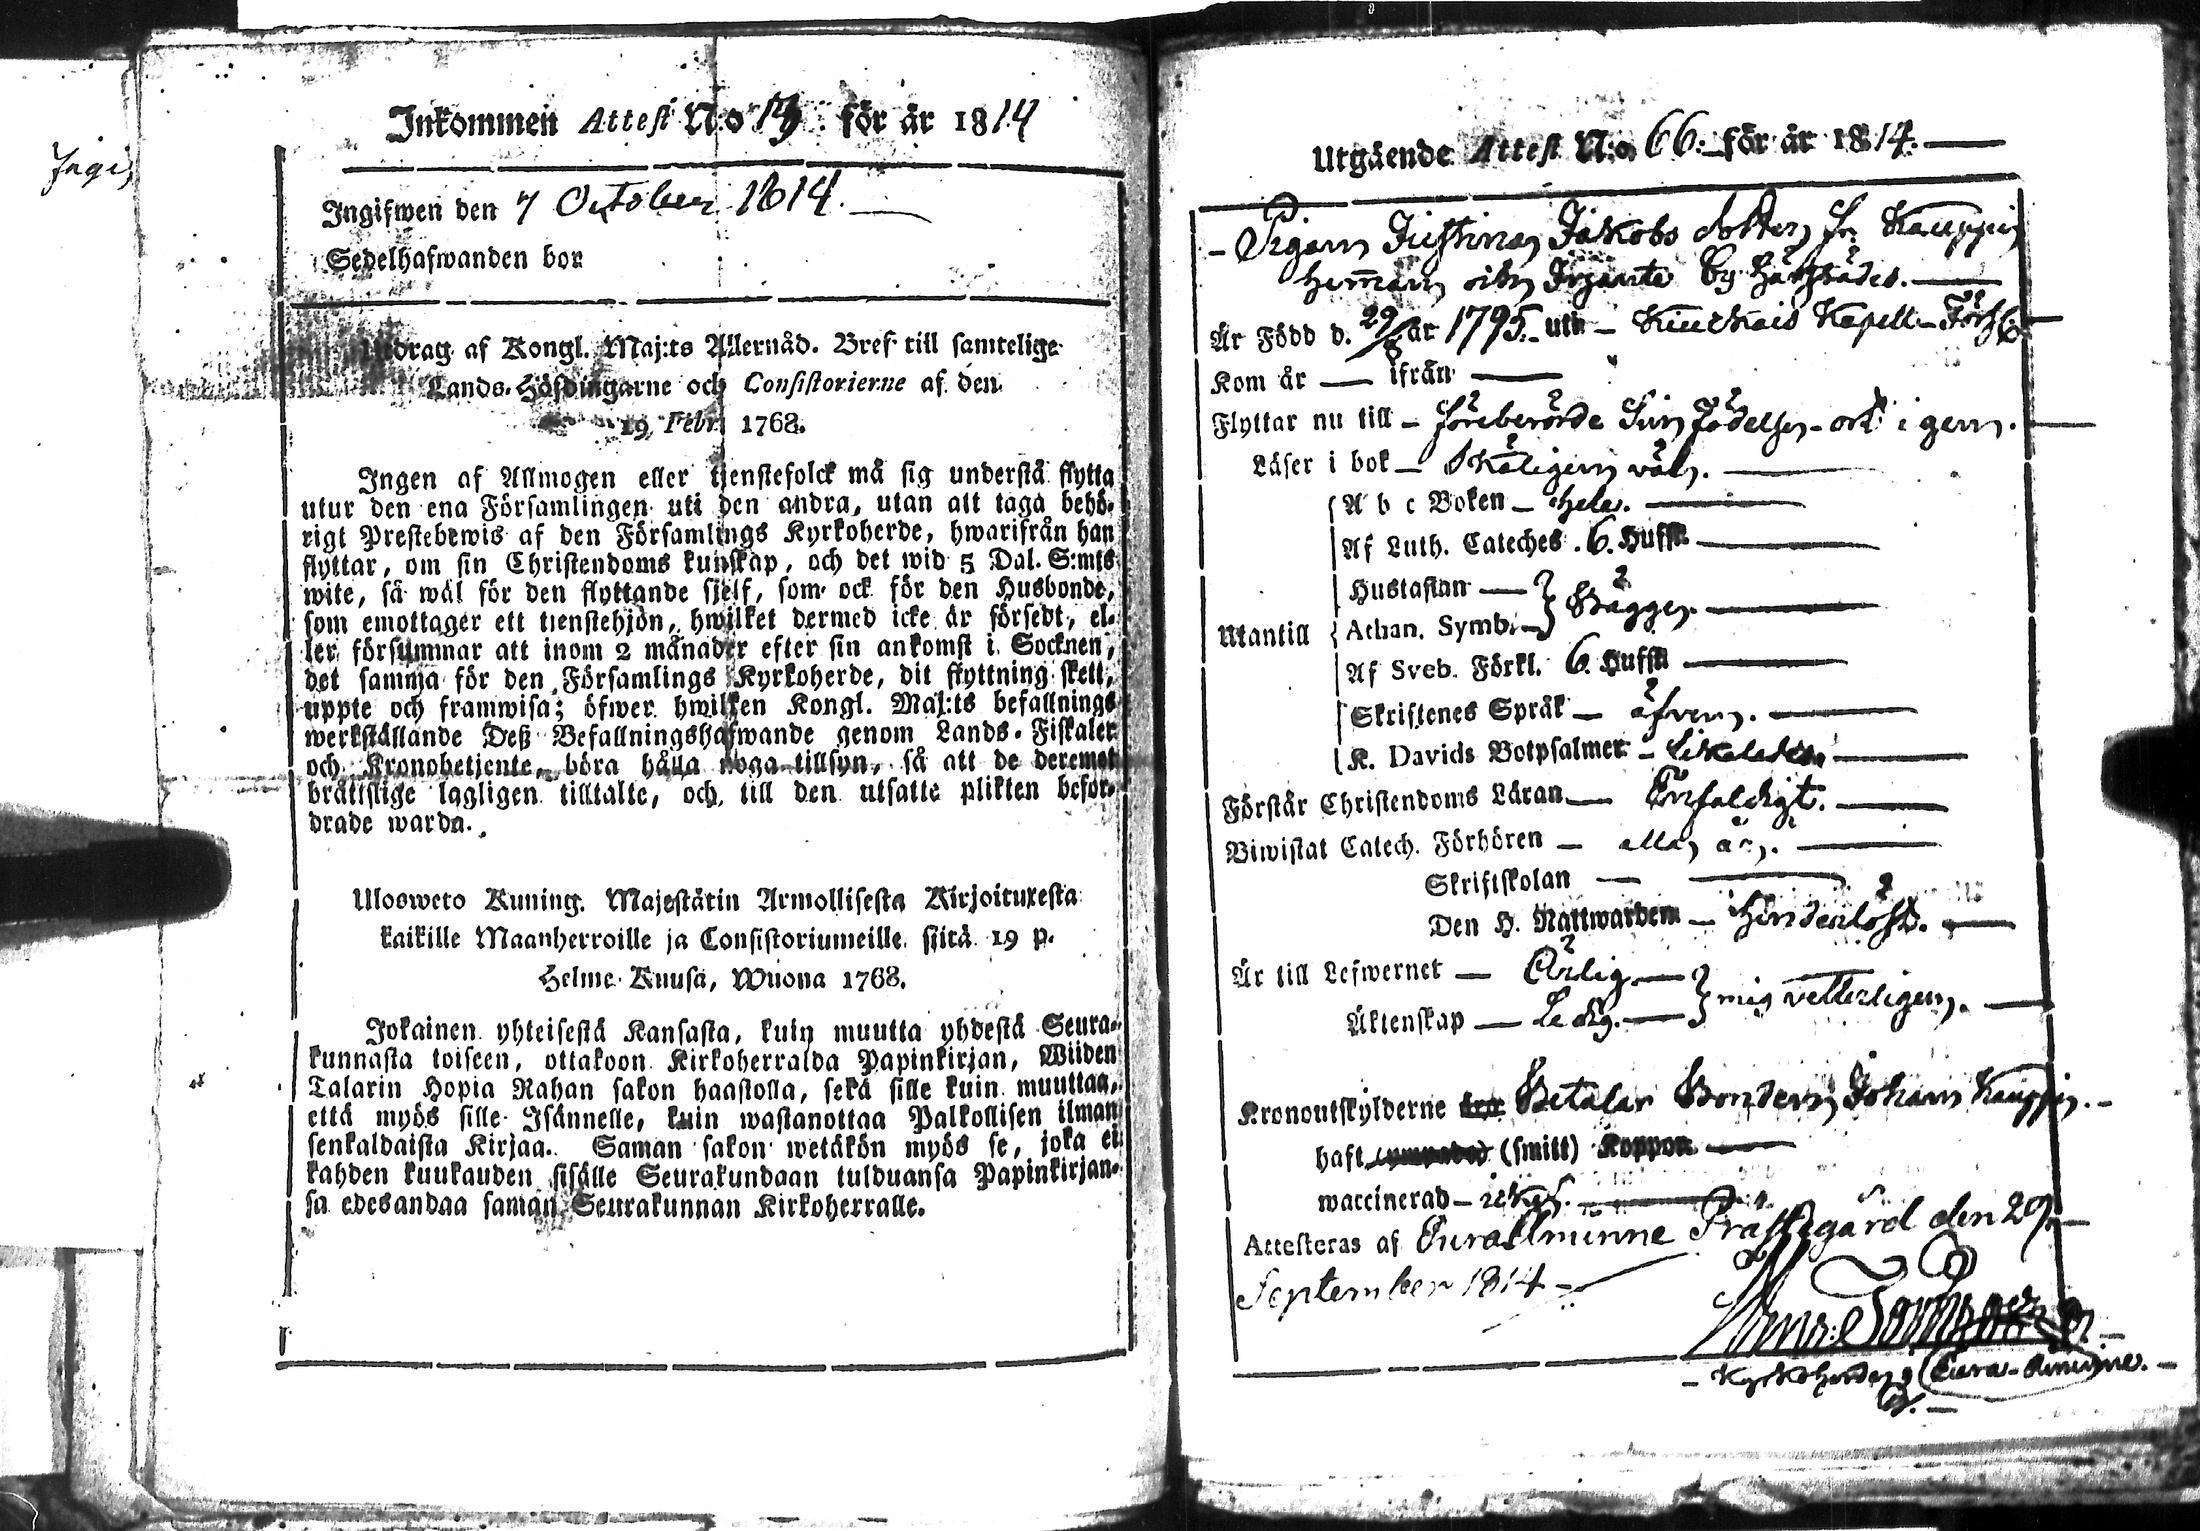 Ingif
Inkommen Attest N:o 19 för år 1814
Ingifwen den 7 October 1814.
Sedelhafwanden bor
Utdrag af Kongl. Maj:ts Allernåd. Bref till samtelige
Lands-Höfdingarne och Consistorierne af den
19 Febr. 1768.
Ingen af Allmogen eller tjenstefolck må sig understå flytta
utur den ena Församlingen uti den andra, utan att taga behö-
rigt Prestebewis af den Församlings Kyrkoherde, hwarifrån han
flyttar, om sin Christendoms kunskap, och det wid 5 Dal. S:mts
wite, så wäl för den flyttande sjelf, som ock för den Husbonde,
som emottager ett tienstehjon, hwilket dermed icke är försedt, el-
ler försummar att inom 2 månader efter sin ankomst i Socknen,
det samma för den Församlings Kyrkoherde, dit flyttning skett,
uppte och framwisa; öfwer hwilken Kongl. Maj:ts befallnings
werkställande Deß Befallningshafwande genom Lands-Fiskaler
och Kronobetjente, böra hålla noga tillsyn, så att de deremot
bråttslige lagligen tilltalte, och till den utsatte plikten befor-
drade warda.
Ulosweto Kuning. Majestätin Armollisesta Kirjoituxesta
kaikille Maanherroille ja Consistoriumeille siitä 19 p.
Helme Kuusa, Wuona 1768.
Jokainen yhteisestä Kansasta, kuin muutta yhdestä Seura-
kunnasta toiseen, ottakoon Kirkoherralda Papinkirjan, Wiiden
Talarin Hopia Rahan sakon haastolla, sekä sille kuin muuttaa,
että myös sille Isännelle, kuin wastanottaa Palkollisen ilman
senkaldaista Kirjaa. Saman sakon wetäkön myös se, joka ei
kahden kuukauden sisälle Seurakundaan tulduansa Papinkirjan-
sa edesandaa saman Seurakunnan Kirkoherralle.
Utgående Attest N:o 66. för år 1814.
Pigan Justina Jakobs dotter fr. Kauppi
hemman i by
Är Född d. 29/8 år 1795. uti Kiukais Kapell-Förs.
Kom år — ifrån —
Flyttar nu till föreberörde sin födelse-ort igen.
Läser i bok skäligen väl.
A b c Boken hela.
Af Luth. Cateches. 6. Hufst.
Hustaflan
Utantill Athan. Symb. Bägge.
Af Sveb. Förkl. 6. Hufst.
Skriftenes Språk äfven.
K. Davids Botpsalmer likaledes.
Förstår Christendoms Läran Enfaldigt.
Biwistat Catech. Förhören alla år.
Skriftskolan —
Den H. Nattwarden hinderlöst.
Är till Lefwernet Ärlig
mig vetterligen.
Äktenskap Ledig.
Kronoutskylderne Betalar Bonden Johan Kauppi.
haft (smitt) Koppon
waccinerad
Attesteras af Euraåminne Prästegård den 29
September 1814
Kyrkoherde i Eura-Åminne.